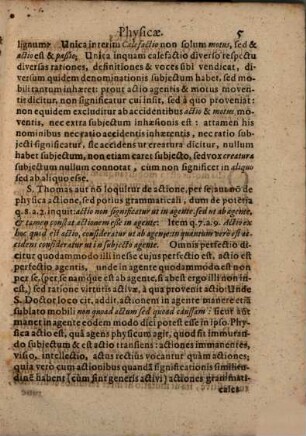 Physicæ. 5
lignum? Unica interim Calefactio non solum motus, sed &
actio est & passio; Unica inquam calefactio diverso respectu
diversas rationes, definitiones & voces sibi vendicat, di-
versum quidem denominationis subjectum habet, sed mo-
bili tantum inhæret: prout actio agentis & motus moven-
tis dicitur, non significatur cui insit, sed à quo proveniat:
non equidem excluditur ab accidentibus actio & motus mo-
ventis, nec extra subjectum inhæsionis est: attamen his
nominibus nec ratio accidentis inhærentis, nec ratio sub-
jecti significatur, sic accidens ur creatura dicitur, nullum
habet subjectum, non etiam caret subjecto, sed vox creatura
subjectum nullum connotat, cum non significet in aliquo
sed ab aliquo esse.
S. Thomas aut nõ loquitur de actione, per se, aut nõ de
physica actione, sed potius grammaticali, dum de potentia
q. 8. a. 2. inquit: actio non significatur ut in agente, sed ut ab agente,
& tamen constat actionem esse in agente: Item q. 7. a. 9. Actio ex
hoc quod est actio, consideratur ut ab agente: in quantum verò est ac-
cidens consideratur ut in subjecto agente. Omnis perfectio di-
citur quodammodo illi inesse cujus perfectio est, actio est
perfectio agentis, unde in agente quodammodo est non
per se, (per se namque est ab agente, si ab est ergo illi non in-
est) sed ratione virtutis activæ, à qua provenit actio: Unde
S. Doctor loco cit. addit: actionem in agente manere etiã
sublato mobili non quoad actum sed quoad caussam: Sicut aũt
manet in agente eodem modo dici potest esse in ipso. Physi-
ca actio est, quâ agẽs physicum agit, quod fit immutan-
do subjectum & est actio transiens: actiones immanentes,
visio, intellectio, actus vocantur quàm actiones;
quia verò cum actionibus quandã significationis simili-
dinẽ habent [cũm sint generis activi] actiones grammati-
cales